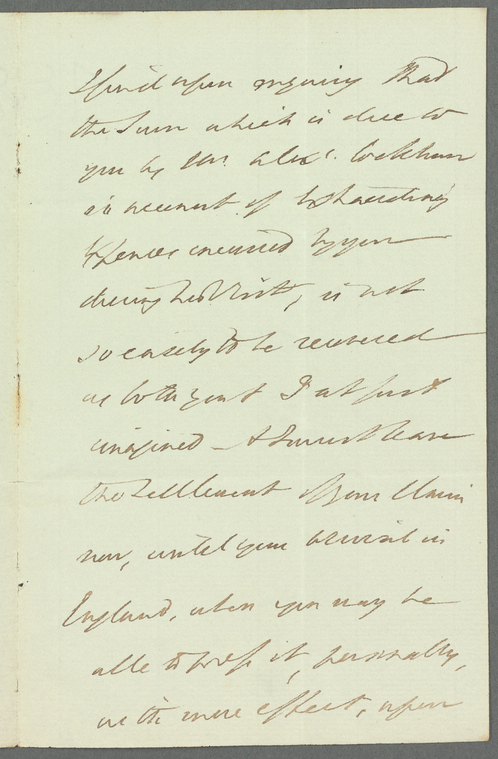 I find upon enquiry that
the Sum which is due to
you by Mr. Alexr. Cockburn
in account of
Expences incurred by you
during his Visit, is not
so easily to be recovered
as both you & I at first
imagined — & I must leave
the settlement of your Claim
now, until your arrival in
England, when you may be
able to press it, personally,
with more effect, upon